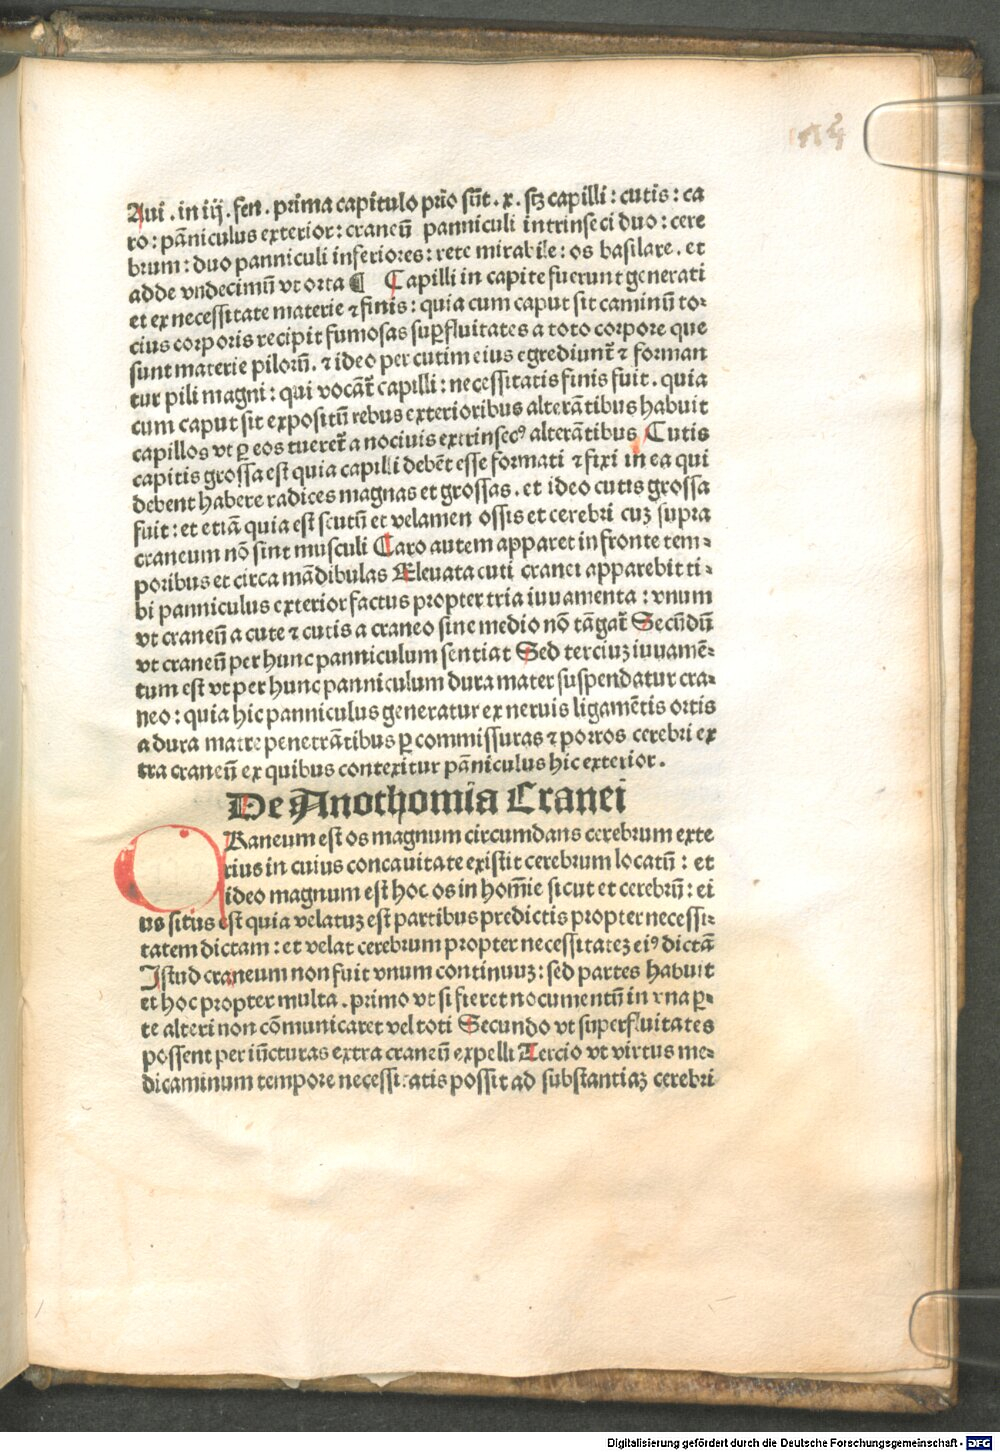 Aui . in iij . fen . prima capitulo prĩo sũt . x . sꝫ capilli : cutis : ca
ro : pãniculus exterior : craneũ panniculi intrinseci duo : cere
brum : duo panniculi inferiores : rete mirabile : os basilare . et
adde vndecimũ vt orta ¶ Capilli in capite fuerunt generati
et ex necessitate materie ⁊ finis : quia cum caput sit caminũ to⸗
cius corporis recipit fumosas suꝑfluitates a toto corpore que
sunt materie pilorũ . ⁊ ideo per cutim eius egrediunt̃ ⁊ forman
tur pili magni : qui vocãt̃ capilli : necessitatis finis fuit . quia
cum caput sit expositũ rebus exterioribus alterãtibus habuit
capillos vt ꝑ eos tueret̃ a nociuis extrinsecꝰ alterãtibus Cutis
capitis grossa est quia capilli debẽt esse formati ⁊ fixi in ea qui
debent habere radices magnas et grossas . et ideo cutis grossa
fuit : et etiã quia est scutũ et velamen ossis et cerebri cuꝫ supra
craneum nõ sint musculi Caro autem apparet in fronte tem⸗
poribus et circa mãdibulas Eleuata cuti cranei apparebit ti⸗
bi panniculus exterior factus propter tria iuuamenta : vnum
vt craneũ a cute ⁊ cutis a craneo sine medio nõ tãgat̃ Secũdũ
vt craneũ per hunc panniculum sentiat Sed terciuꝫ iuuamẽ⸗
tum est vt per hunc panniculum dura mater suspendatur cra⸗
neo : quia hic panniculus generatur ex neruis ligamẽtis ortis
a dura matre penetrãtibus ꝑ commissuras ⁊ porros cerebri ex
tra craneũ ex quibus contexitur pãniculus hic exterior .
De Anothomia Cranei
CRaneum est os magnum circumdans cerebrum exte
rius in cuius concauitate existit cerebrum locatũ : et
ideo magnum est hoc os in hom̃ie sicut et cerebrũ : ei
us situs est quia velatuꝫ est partibus predictis propter necessi⸗
tatem dictam : et velat cerebrum propter necessitateꝫ eiꝰ dictã
Istud craneum non fuit vnum continuuꝫ : sed partes habuit
et hoc propter multa . primo vt si fieret nocumentũ in vna ꝑ⸗
te alteri non cõmunicaret vel toti Secundo vt suꝑfluitates
possent per iũcturas extra craneũ expelli Tercio vt virtus me⸗
dicaminum tempore necessitatis possit ad substantiaꝫ cerebri
Digitalisierung gefördert durch die Deutsche Forschungsgemeinschaft - DFG